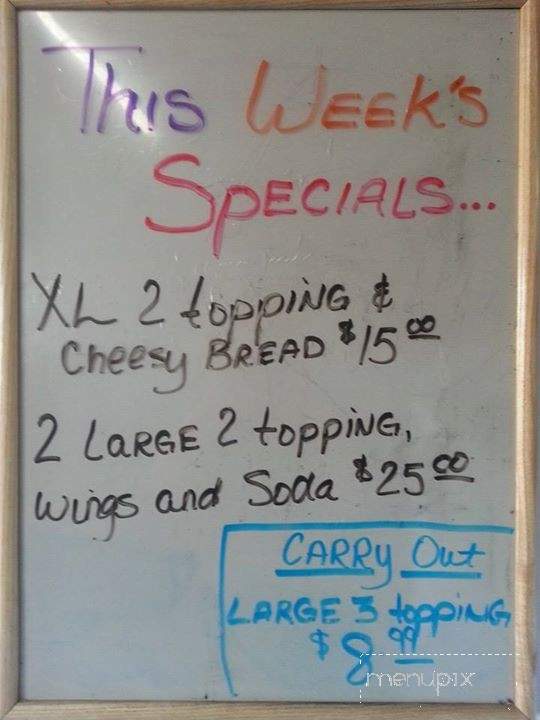 This Week's
Specials...
XL 2 topping &
Cheesy Bread $15.00
2 Large 2 topping,
Wings and Soda $25.00
Carry Out
Large 3 topping
$8.99
menupix